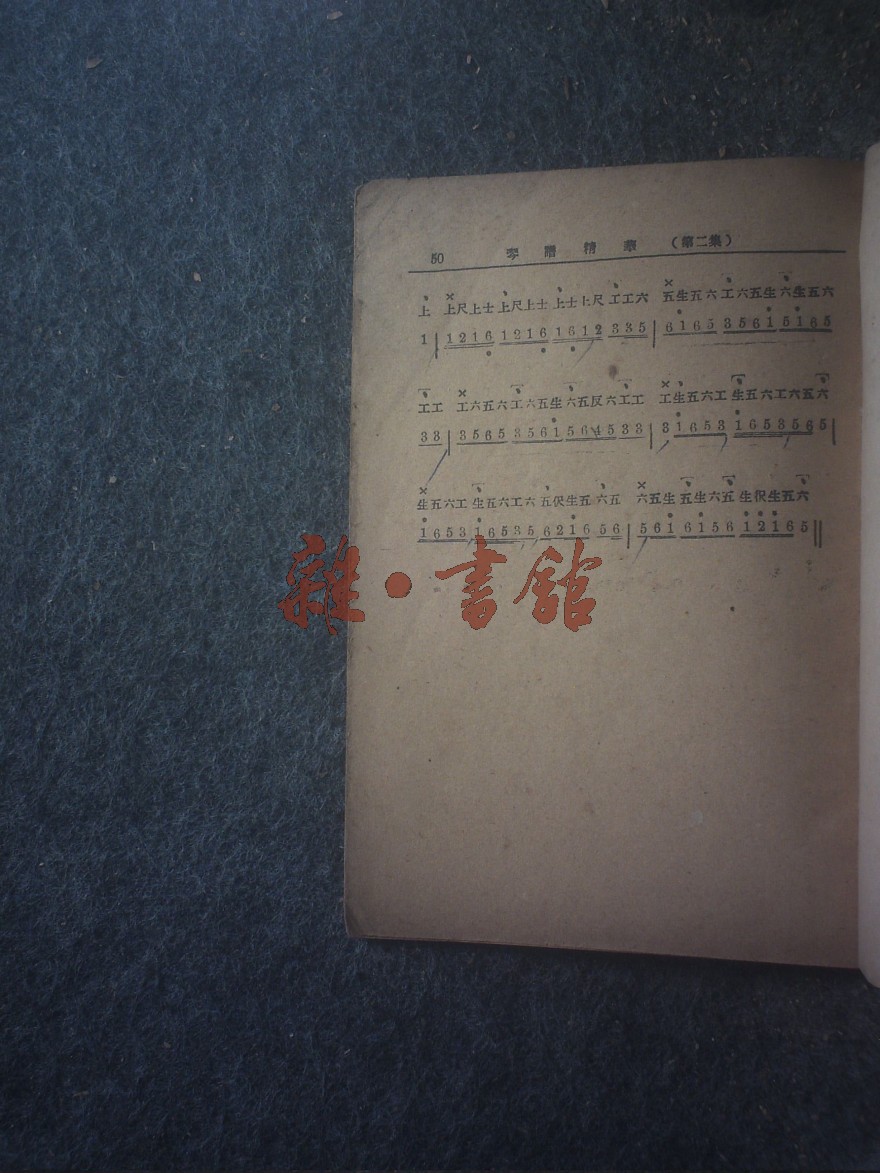 50 琴譜精華 （第二集）
上 上尺上士上尺上士上士上尺工工六 五生五六工六五生六生五六
1 | 1216 1216 1612 335 | 6165 3561 5165
工工 工六五六工六五生六五反六工工 工生五六工生五六工六五六
33 | 3565 3561 564533 | 31653 1653565 |
生五六工生五六工六五伬生五六五 六五生五生六五生伬生五六
1653165356216 56 | 561 6156 12165 ||
雜·書館